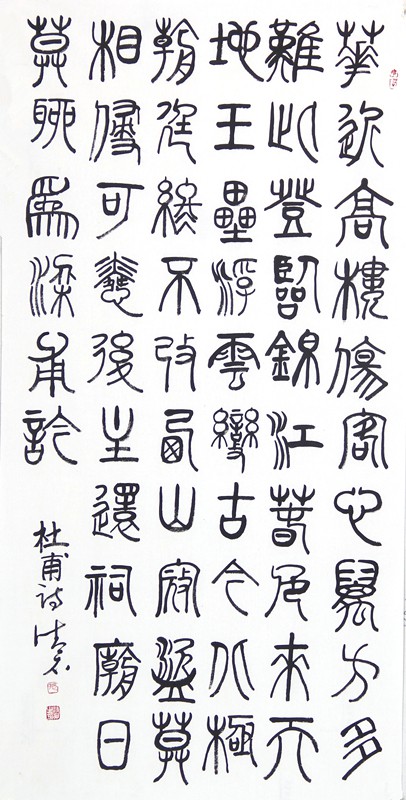 華近高樓傷客心萬方多
難此登臨錦江萅色來天
地玉壘浮雲變古今北極
朝廷終不改西山寇盜莫
相侵可憐後主還祠廟日
莫聊爲梁甫訡
杜甫詩